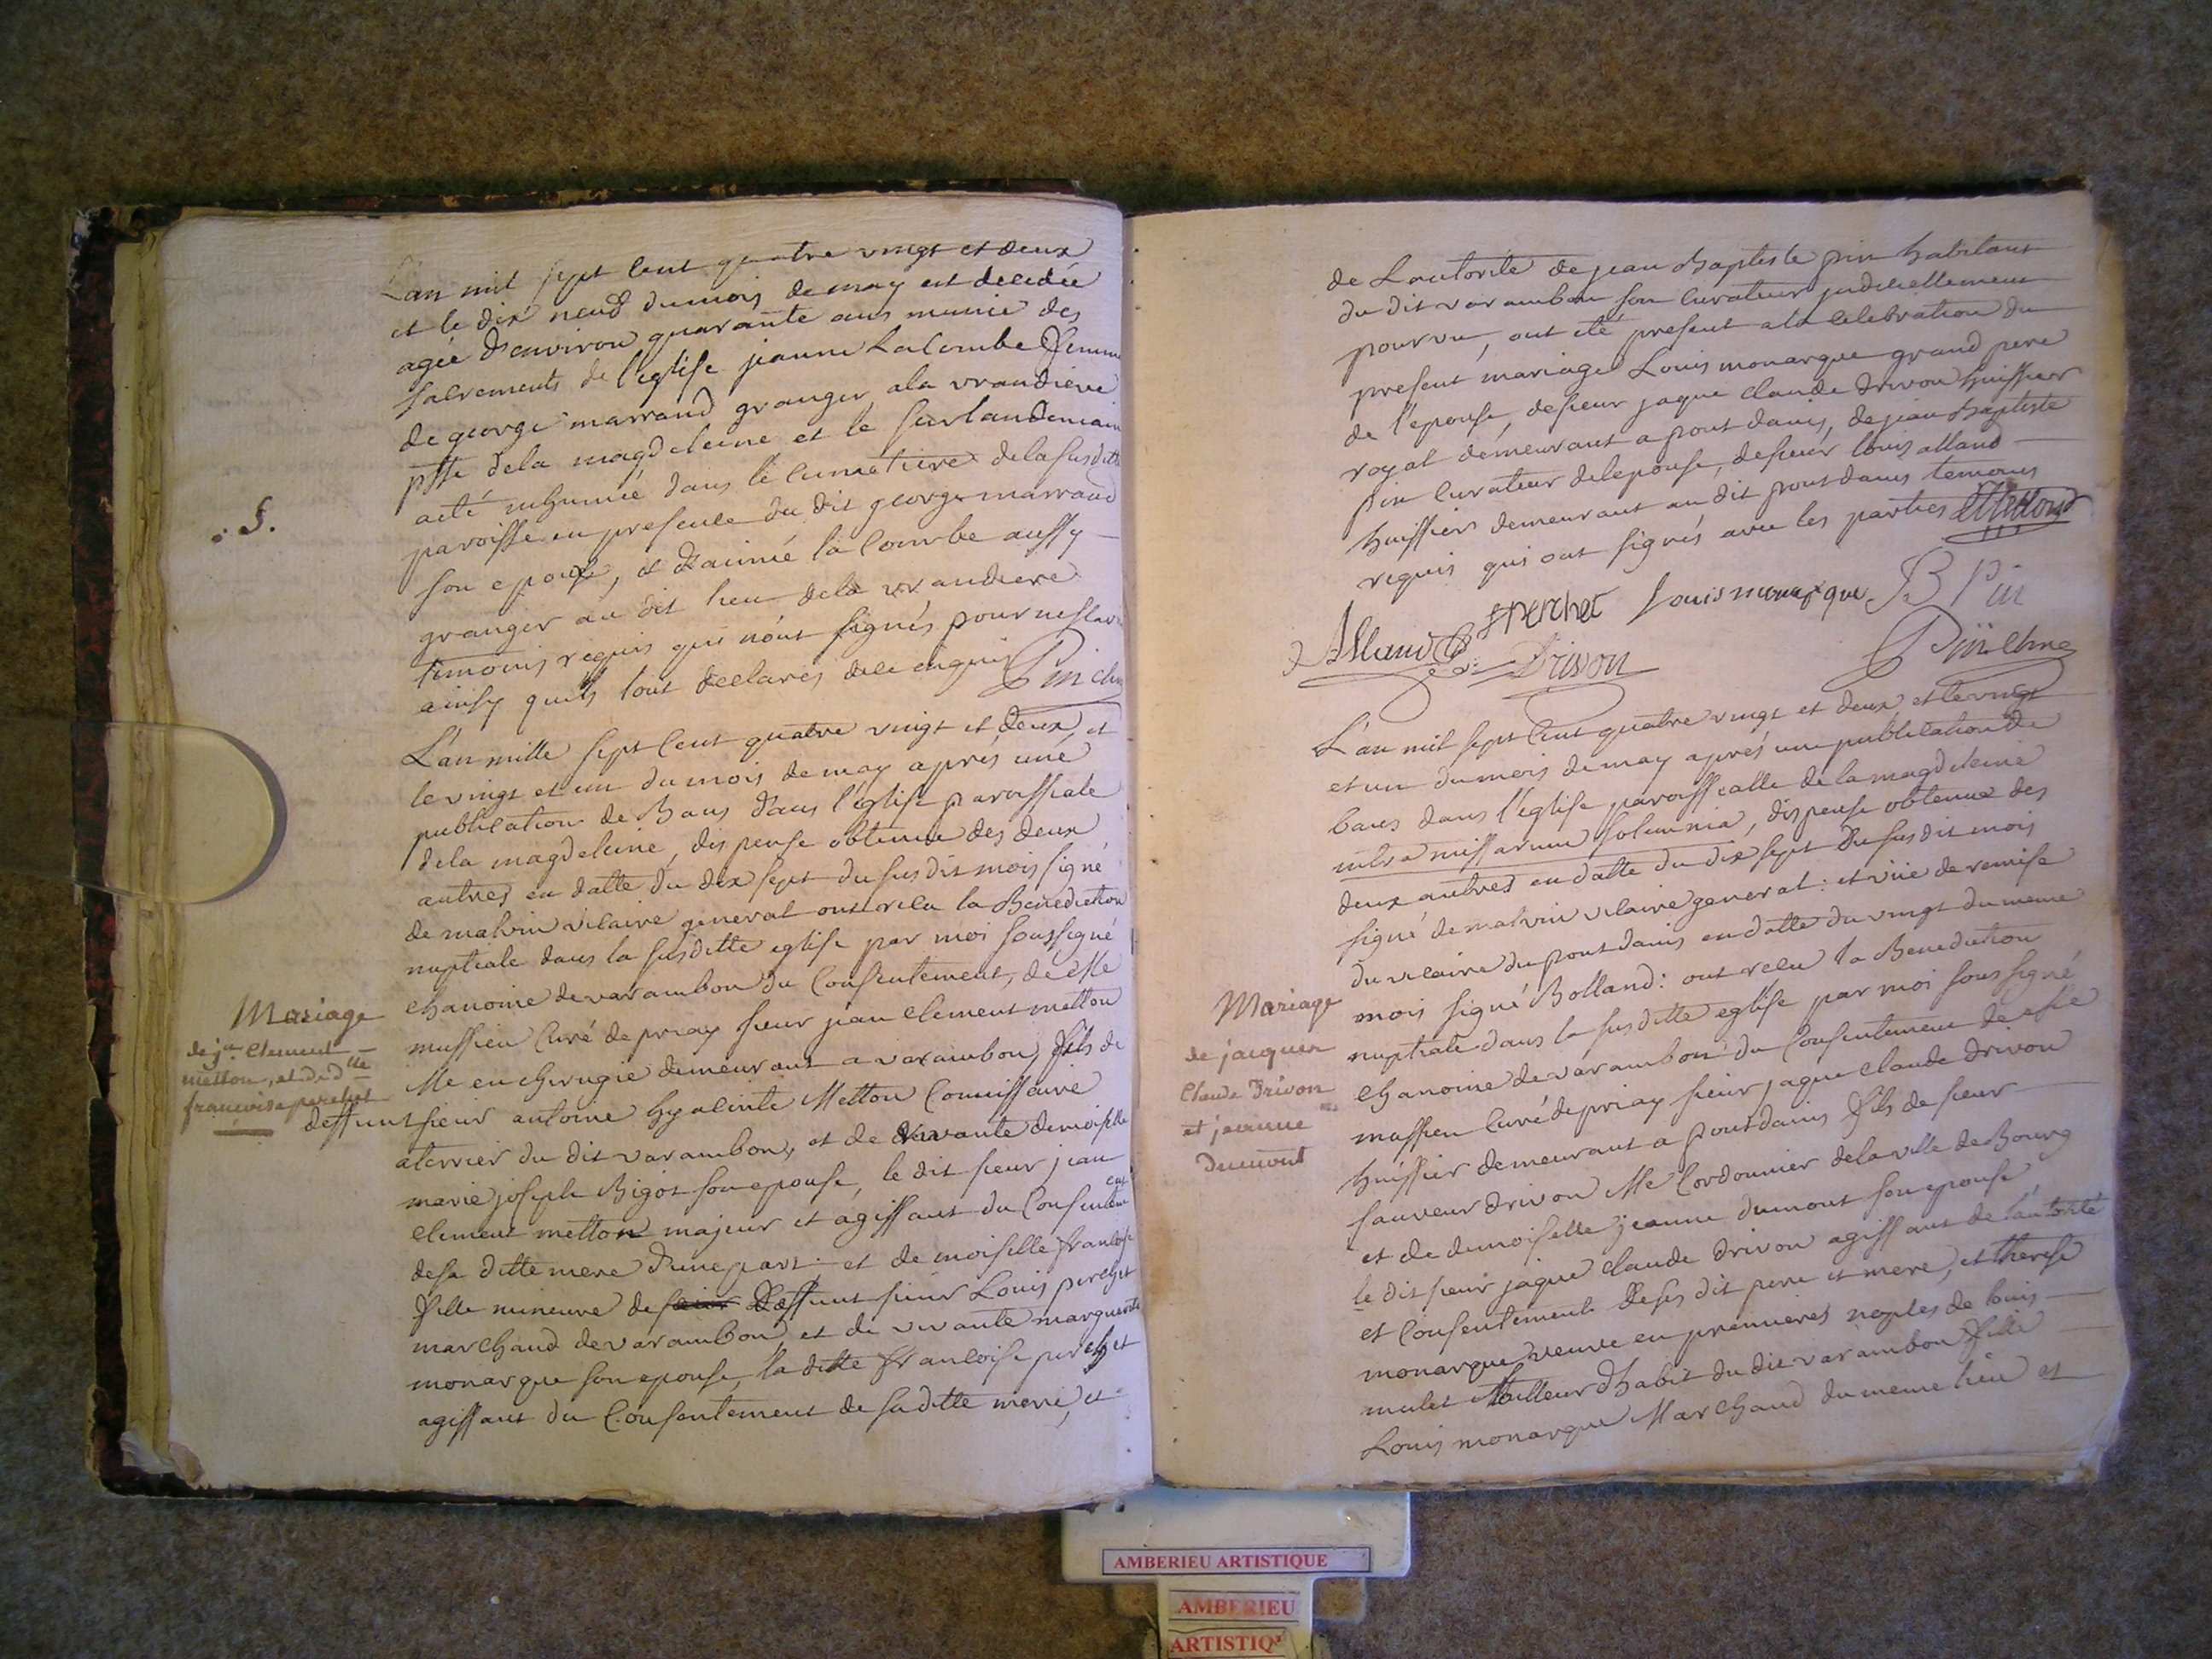 L'an mil sept cent quatre vingt et deux
et le dix neuf du mois de may est decedée
agée d'environ quarante ans munie des
sacrements de l'eglise jeanne Lacombe femme
de george marraud granger ala vrandiere
psse dela magdeleine et le surlandemain
a eté inhumée dans le cimetiere dela susditte
paroisse en presence du dit george marraud
son epoux, et d'aimé la Combe aussy
granger au dit lieu dela vrandiere
temoins requis qui n'ont signés pour ne scavoir
ainsy quils l'ont declarés de ce enquis
. S.
L'an mille sept cent quatre vingt et deux, et
le vingt et un du mois de may aprés une
publication de Bans dans l'eglise paroissiale
dela magdeleine, dispense obtenue des deux
autres en datte du dix sept du susdit mois signé
de malvin vicaire general ont recu la Benediction
nuptiale dans la susditte eglise par moi soussigné
chanoine de varambon du Consentement, de Mre
massieu Curé de priay sieur jean Clement metton
Me en chirugie demeurant a varambon, fils de
deffunt sieur antoine hyacinte Metton Commissaire
aterrier du dit varambon, et de vivante demoiselle
marie joseph Bigot son epouse, le dit sieur jean
Clement metton majeur et agissant du Consentement
de sa ditte mere d'une part et de moiselle francoise
fille mineure de deffunt sieur Louis perchet
marchand de varambon et de vivante marguerite
monarque son epouse, la ditte francoise perchet
agissant du Consentement de sa ditte mere, et
Mariage
de jn. Clement
metton, et de dlle
francoise perchet
de L'autorité de jean Baptiste pin habitant
du dit varambon son Curateur judiciellement
pourvu, ont eté present a la celebration du
present mariage Louis monarque grand pere
de l'epouse, de sieur jaque Claude drivon huissier
royal demeurant a pont dains, de jean Baptiste
pin Curateur de lepouse, de sieur louis alland
huissier demeurant au dit pont dains temoins
requis qui ont signés avec les parties Metton
Alland f perchet Louis monarque J B Pin
Drivon
L'an mil sept cent quatre vingt et deux, et le vingt
et un du mois de may aprés une publication de
bans dans l'eglise paroissialle de la magdeleine
intra missarum solemnia, dispense obtenue des
deux autres en datte du dix sept du susdit mois
signé de malvin vicaire general: et vüe de remise
du vicaire du pont dains en datte du vingt du meme
mois signé Bolland: ont recu la Benediction
nuptiale dans la susditte eglise par moi soussigné
chanoine de varambon du Consentement de Mre
massieu Curé de priay sieur jaque Claude drivon
huissier demeurant a pont dains fils de sieur
sauveur drivon Me Cordonnier dela ville de Bourg
et de demoiselle jeanne dumont son epouse,
le dit sieur jaque Claude drivon agissant de l'autorité
et Consentement de ses dit pere et mere, et therese
monarque veuve en premieres noples de louis
mulet tailleur d'habit du dit varambon fille
Louis monarque Marchand du meme lieu et
Mariage
de jacques
Claude Drivon
et jeanne
Dumont
AMBERIEU ARTISTIQUE
AMBERIEU
ARTISTIQ